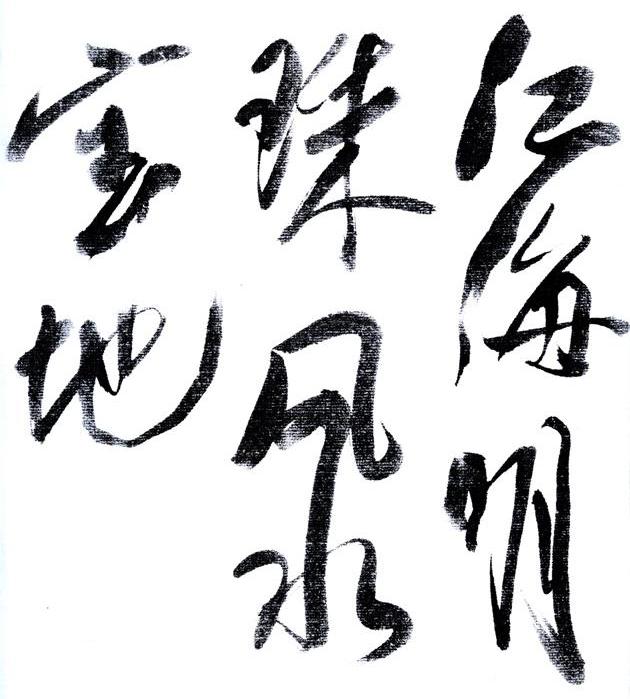 江海明
珠风水
宝地